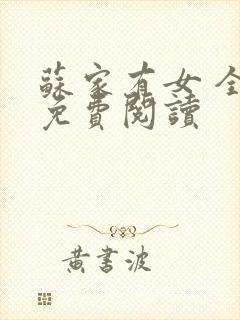 蘇家有女 全
免費閱讀
黃書波